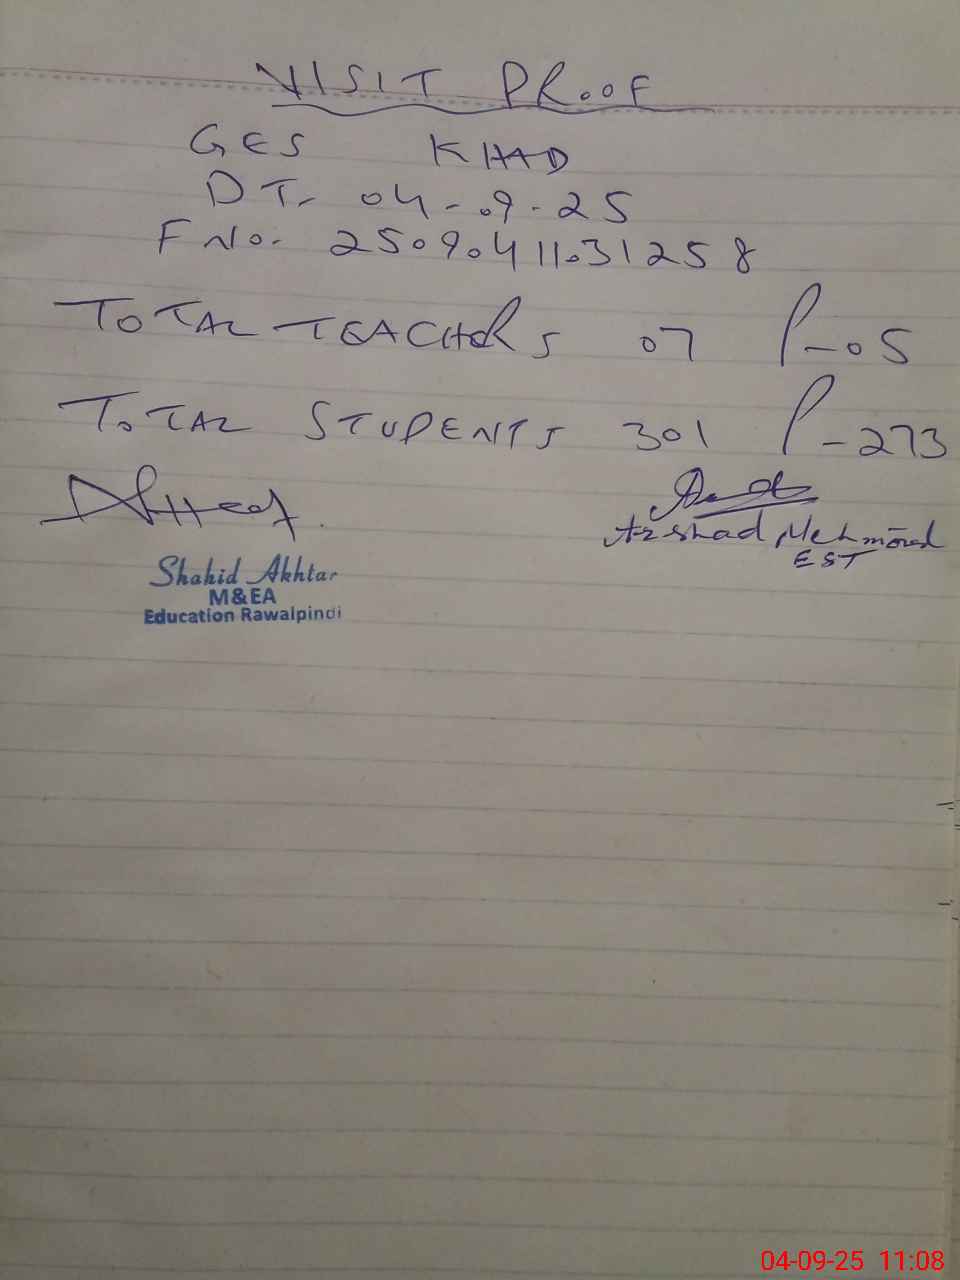 VISIT PROOF
GES KHAD
DT. 04-09-25
F No. 25090411031258
TOTAL TEACHERS 07 P-05
TOTAL STUDENTS 301 P-273
Arshad Mehmood
EST
Shahid Akhtar
M&EA
Education Rawalpindi
04-09-25 11:08